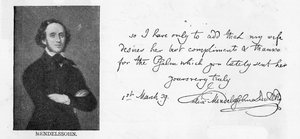 so I have only to add that my wife
desires her best compliment & thanks
for the Psalm which you lately sent her
yours very truly
1st March 39.
Felix Mendelssohn Bartholdy
MENDELSSOHN.